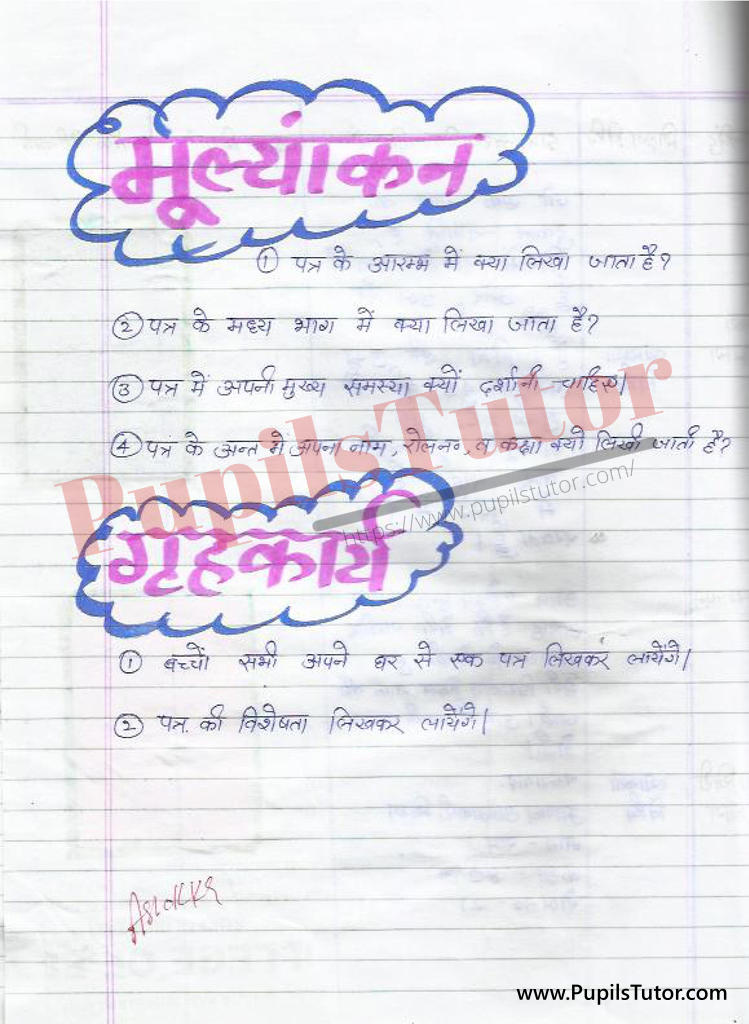 मूल्यांकन
① पत्र के आरम्भ में क्या लिखा जाता है?
② पत्र के मध्य भाग में क्या लिखा जाता है?
③ पत्र में अपनी मुख्य समस्या क्यों दर्शानी चाहिए।
④ पत्र के अन्त में अपना नाम, रोलनं०, व कक्षा क्यों लिखी जाती है?
PupilsTutor
https://www.pupilstutor.com/
गृहकार्य
① बच्चों सभी अपने घर से एक पत्र लिखकर लायेंगे।
② पत्र की विशेषता लिखकर लायेंगे।
www.PupilsTutor.com